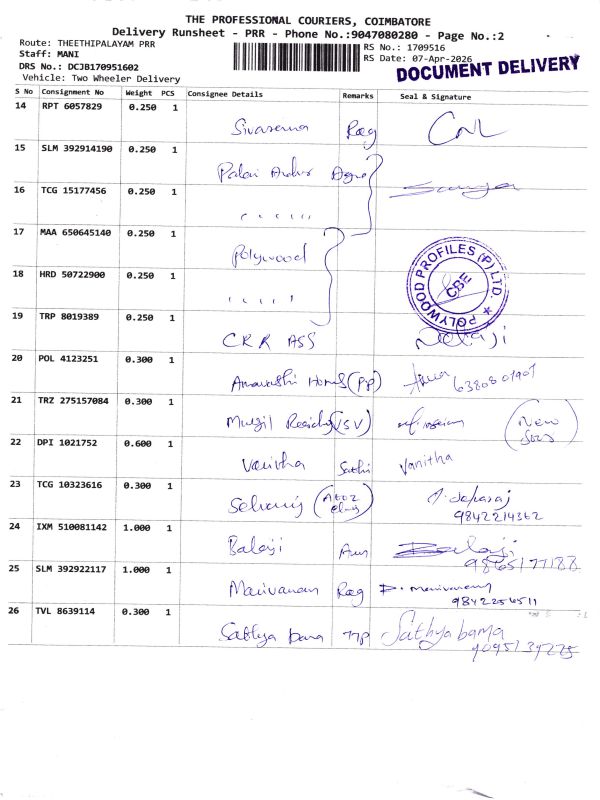 THE PROFESSIONAL COURIERS, COIMBATORE
Delivery Runsheet - PRR - Phone No.:9047080280 - Page No.:2
Route: THEETHIPALAYAM PRR
Staff: MANI
DRS No.: DCJB170951602
Vehicle: Two Wheeler Delivery
RS No.: 1709516
RS Date: 07-Apr-2026
DOCUMENT DELIVERY
S No Consignment No Weight PCS Consignee Details Remarks Seal & Signature
14 RPT 6057829 0.250 1 Reg
15 SLM 392914190 0.250 1
16 TCG 15177456 0.250 1 " " " " " "
17 MAA 650645140 0.250 1 Polywood
18 HRD 50722900 0.250 1 " " " " "
POLYWOOD PROFILES (P) LTD. ★ CBE
19 TRP 8019389 0.250 1 CRR ASS
20 POL 4123251 0.300 1 (PP)
21 TRZ 275157084 0.300 1 (VSV) (New
22 DPI 1021752 0.600 1 Vanitha Sathi Vanitha
23 TCG 10323616 0.300 1
9842214362
24 IXM 510081142 1.000 1 Balaji Balaji
9865177188
25 SLM 392922117 1.000 1 Manivanan Reg P. Manivanan
9842256511
26 TVL 8639114 0.300 1 Sathya bama Sathya bama